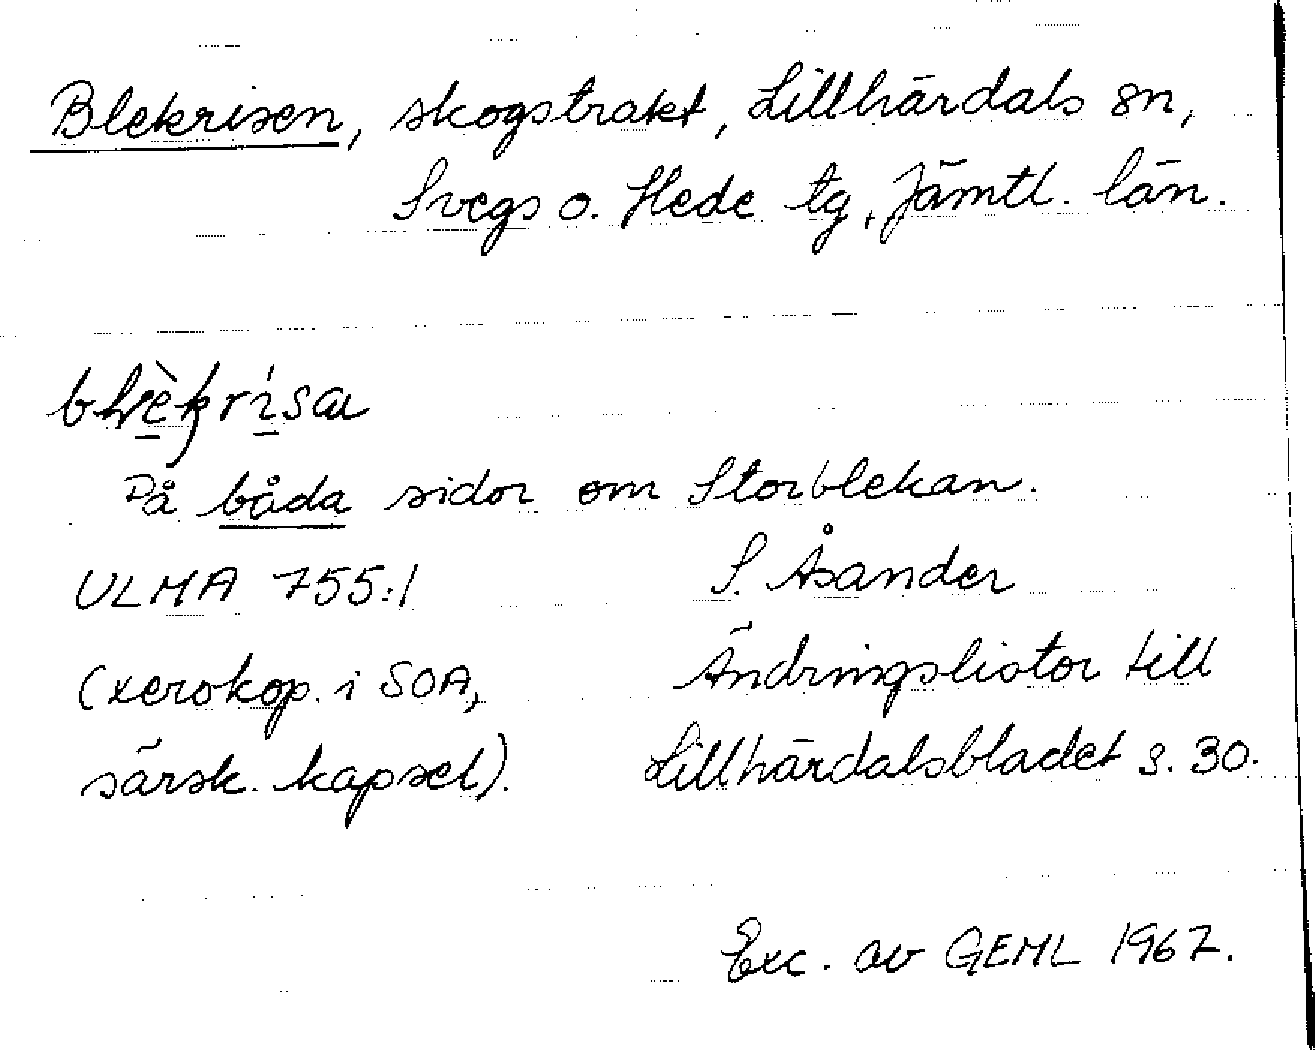 Blekrisen, skogstrakt, Lillhärdals sn,
Svegs o. Hede tg, Jämtl. län.
På båda sidor om Storblekan.
ULMA 755:1 S. Åsander
(xerokop. i SOA, Ändringslistor till
särsk. kapsel). Lillhärdalsbladet s. 30.
Exc. av GEML 1967.